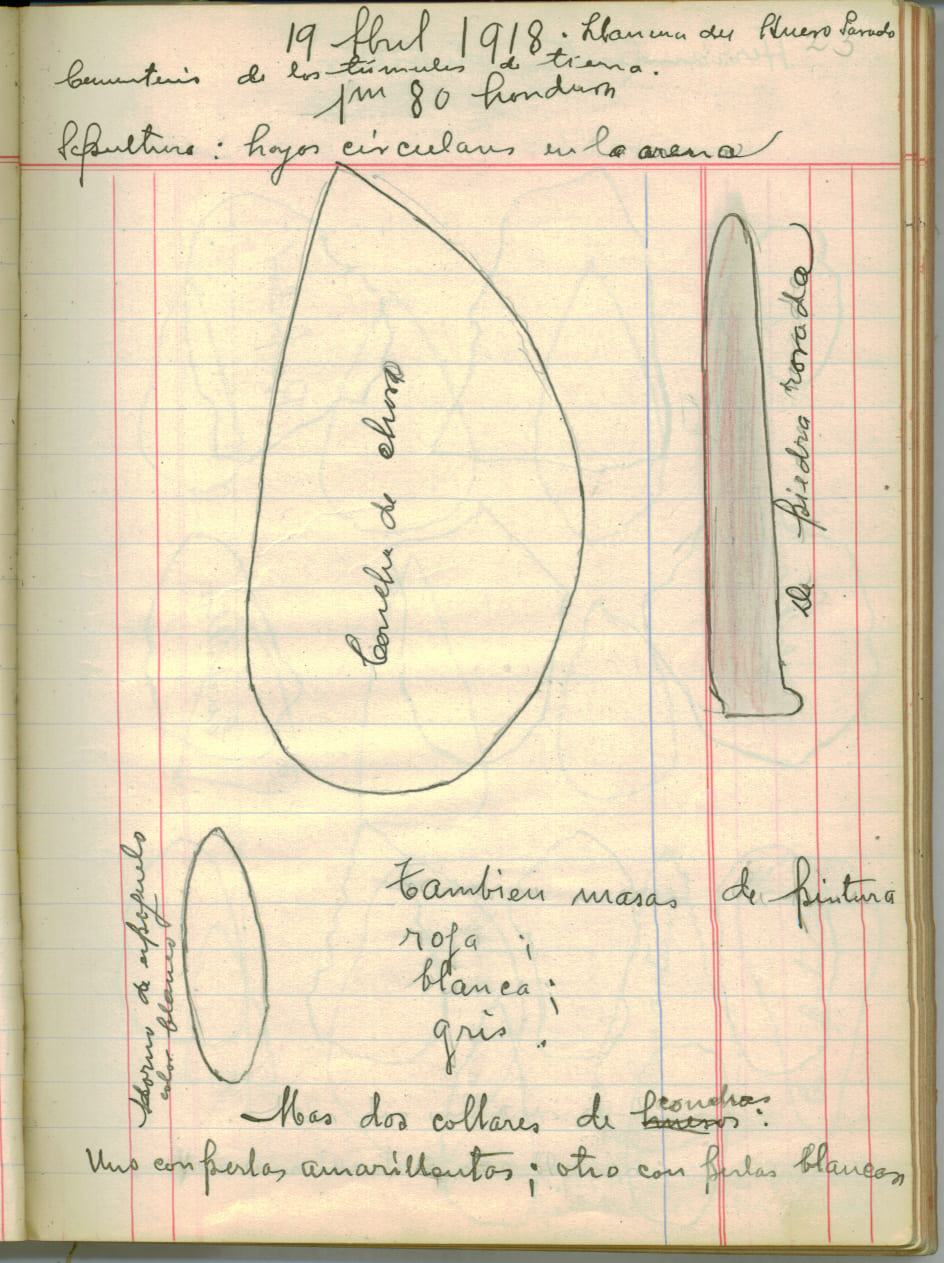 19 Abril 1918. Llanura del Hueso Parado
Cementerio de los túmulos de tierra.
1m 80 hondura
Sepultura: hoyos circulares en la arena
Concha de choro
de piedra rosada
Adorno de espejuelo
color blanco
Tambien masas de pintura
roja ;
blanca ;
gris .
Mas dos collares de huesos conchas :
Uno con perlas amarillentas ; otro con perlas blancas